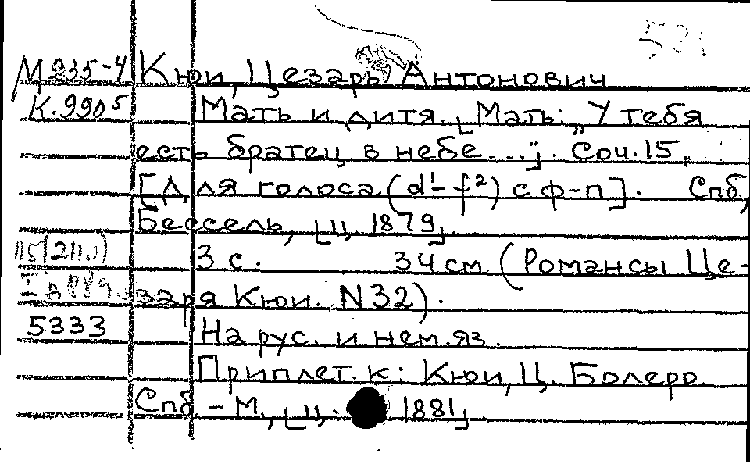 М 235-4 Кюи, Цезарь Антонович
К.990⁵ Мать и дитя. [Мать: „У тебя
есть братец в небе..."]. Соч. 15,
[Для голоса (d¹-f²) с ф-п]. Спб,
Бессель, [ц. 1879].
3 с. 34 см (Романсы Це-
заря Кюи. N32).
5333 На рус. и нем. яз.
Приплет. к: Кюи, Ц. Болеро.
Спб - М., [ц. 1881]